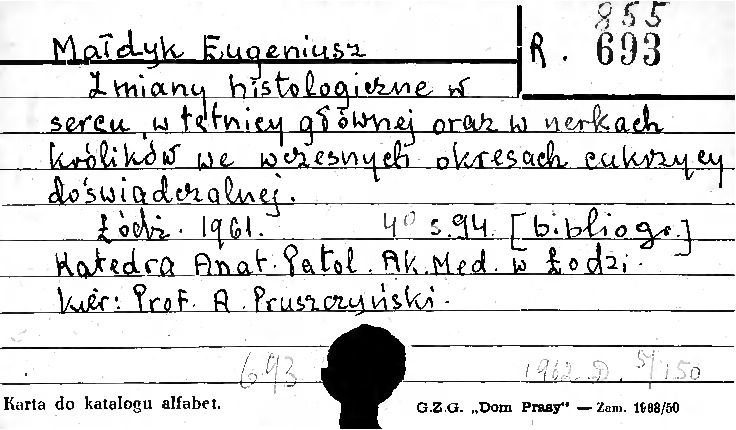 855
Małdyk Eugeniusz R. 693
Zmiany histologiczne w
sercu, w tętnicy głównej oraz w nerkach
królików we wczesnych okresach cukrzycy
doświadczalnej.
Łódź. 1961. 4⁰ s. 94. [bibliogr.]
Katedra Anat. Patol. Ak. Med. w Łodzi.
Kier: Prof. A. Pruszczyński.
693 1962 D. 5/150
Karta do katalogu alfabet. G.Z.G. „Dom Prasy” — Zam. 1998/50